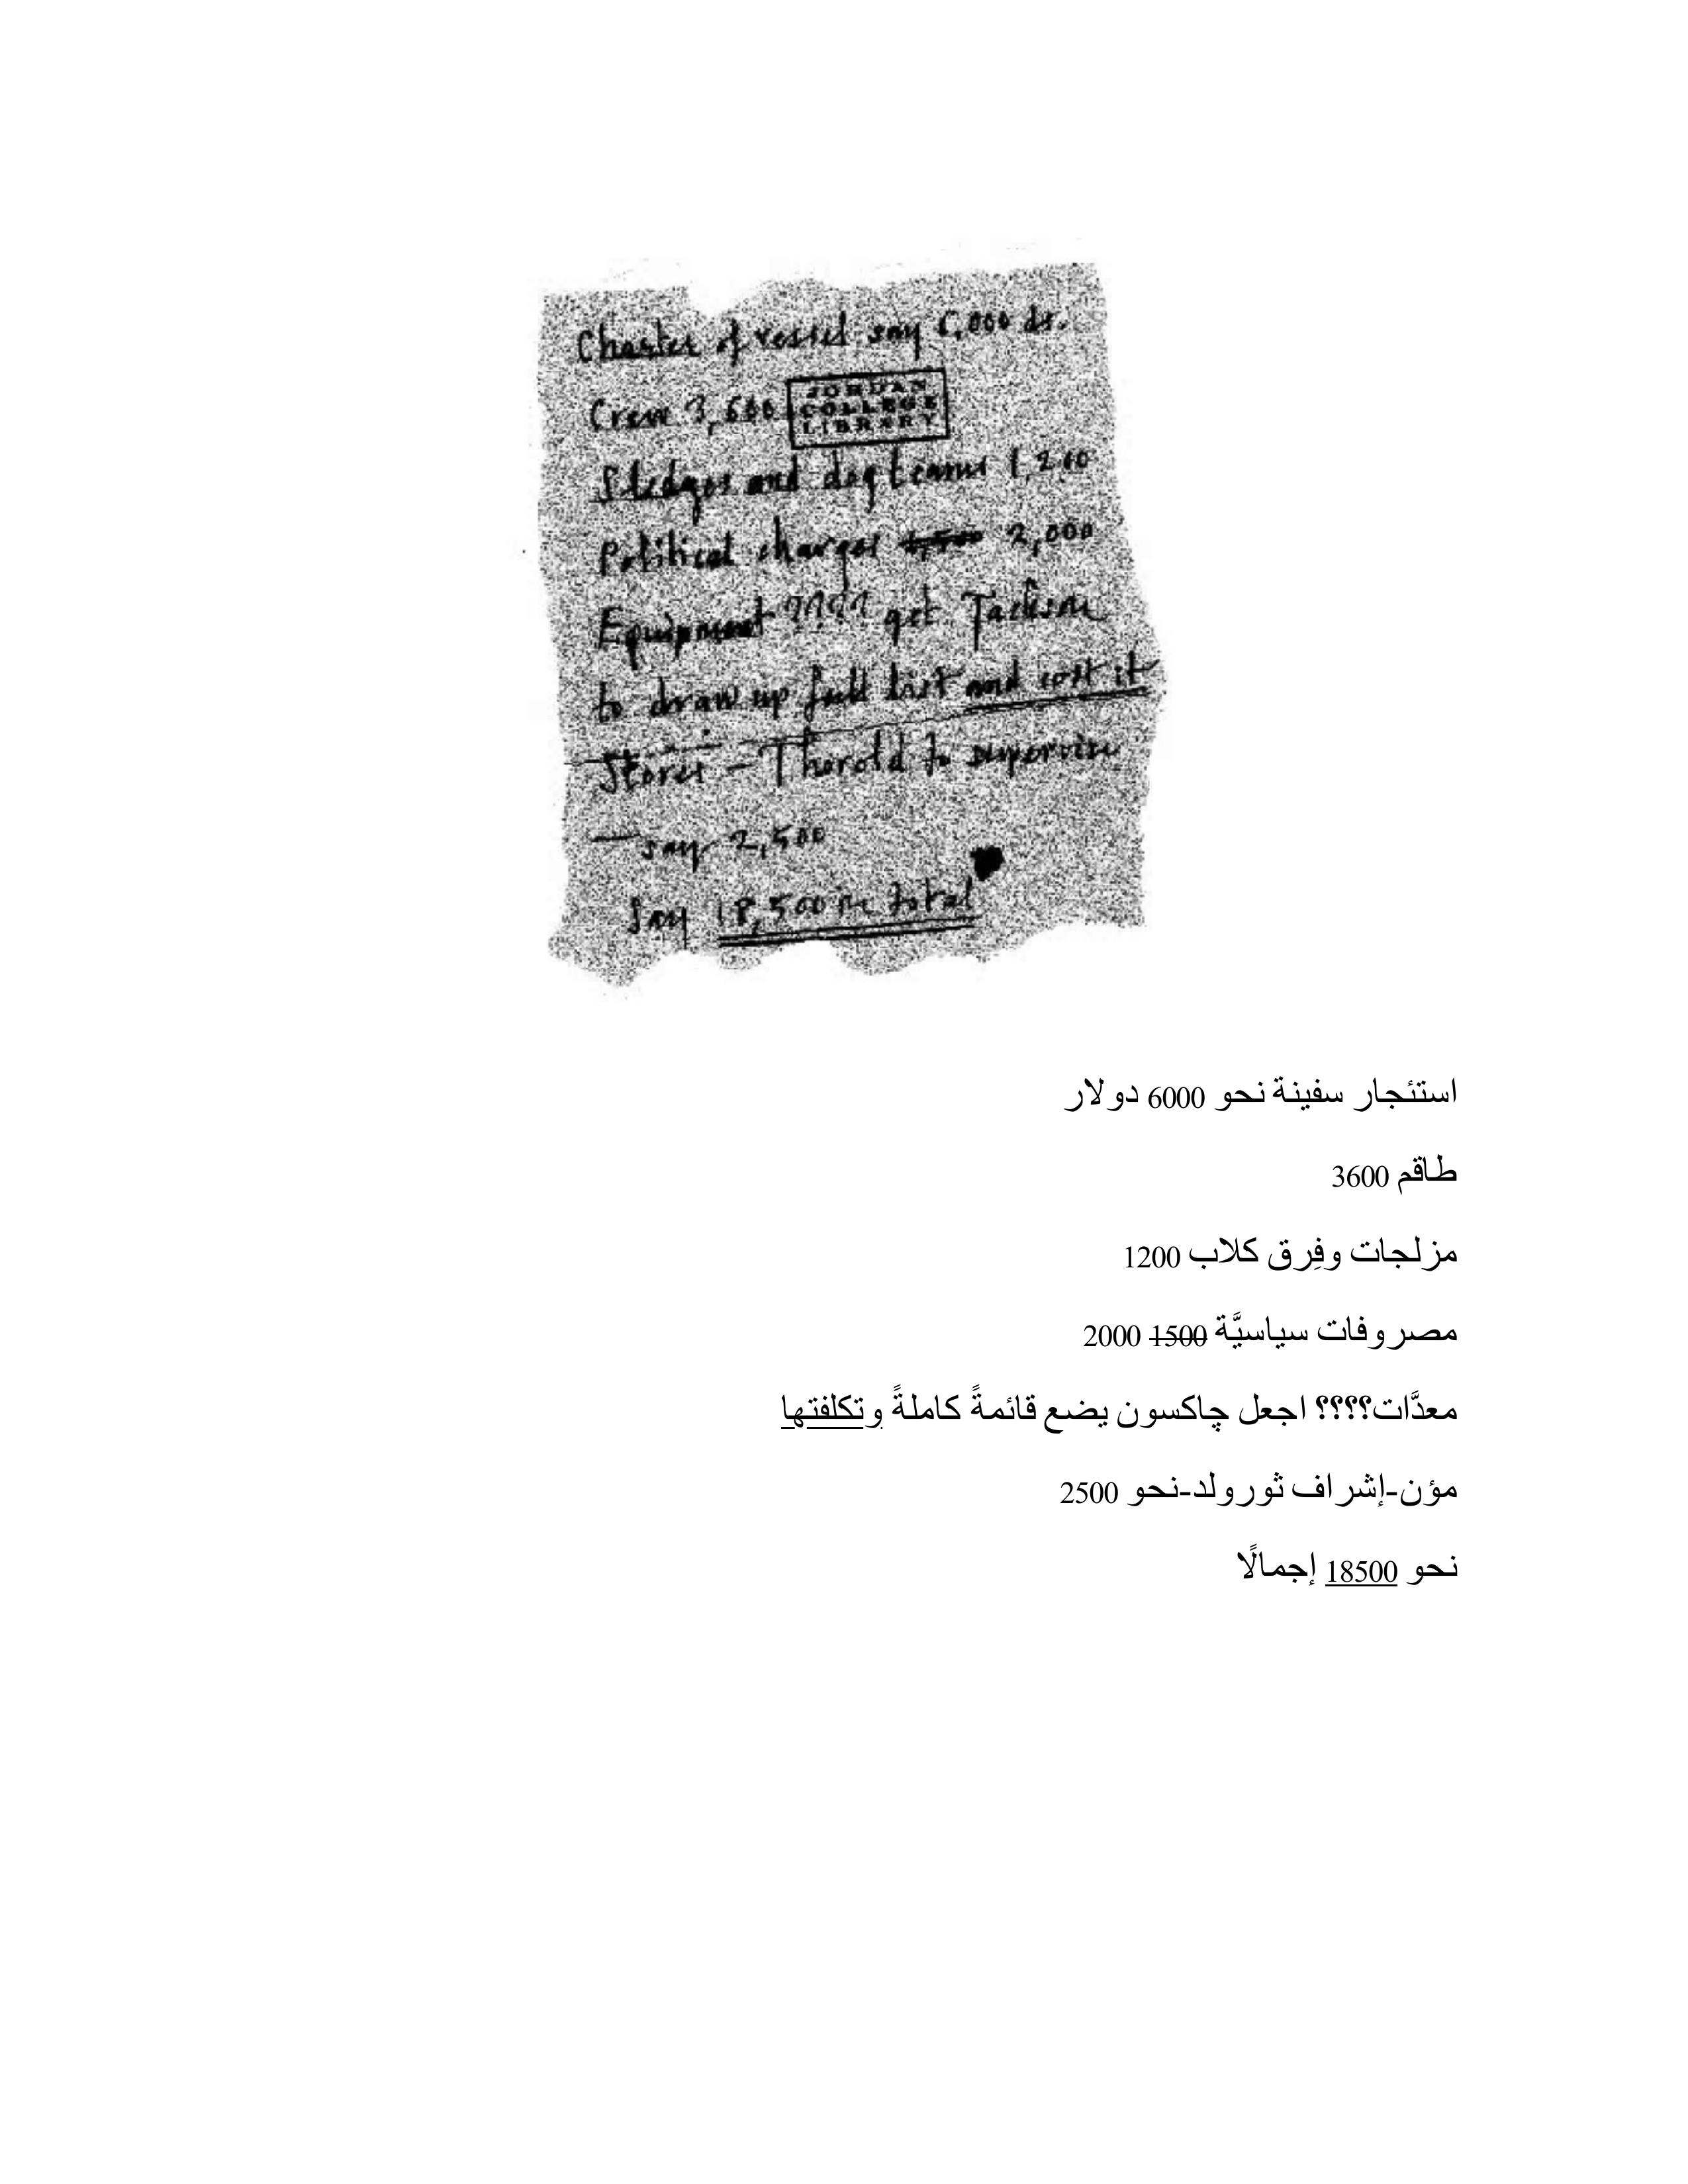 Charter of vessel say 6,000 dr.
Crew 3,600
JORDAN
COLLEGE
LIBRARY
Sledges and dog teams 1,200
Political charges 1,500 2,000
Equipment ???? get Jackson
to draw up full list and cost it
Stores – Thorold to supervise
— say 2,500
Say 18,500 in total
استئجار سفينة نحو 6000 دولار
طاقم 3600
مزلجات وفِرق كلاب 1200
مصروفات سياسيَّة 1500 2000
معدَّات؟؟؟؟ اجعل چاكسون يضع قائمةً كاملةً وتكلفتها
مؤن-إشراف ثورولد-نحو 2500
نحو 18500 إجمالًا